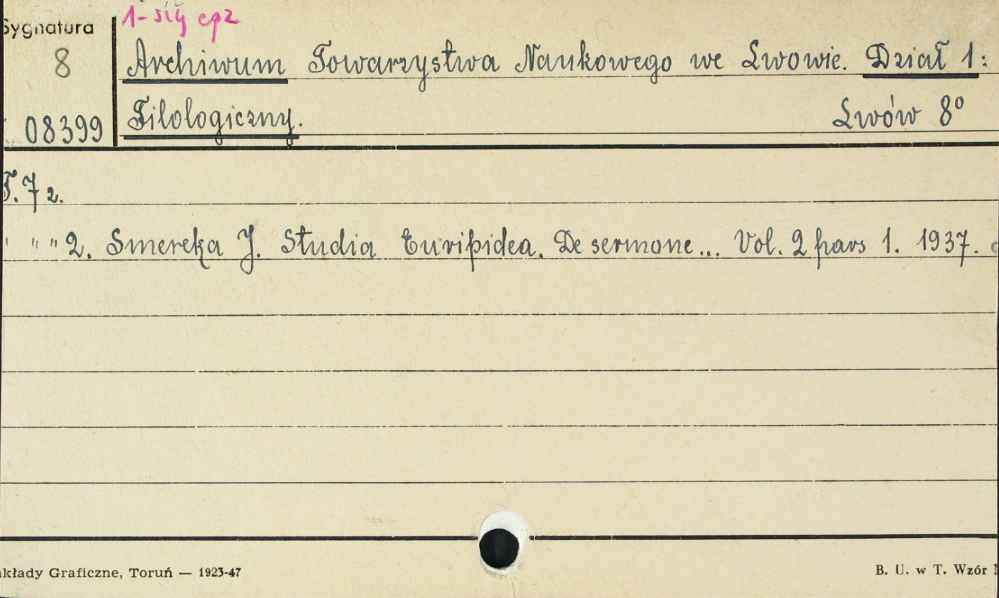 Sygnatura
1-szy egz
8
Archiwum Towarzystwa Naukowego we Lwowie. Dział 1:
08399 Filologiczny. Lwów 8°
T. 7 z.
" " " 2. Smereka J. Studia Euripidea. De sermone... Vol. 2 pars 1. 1937.
kłady Graficzne, Toruń — 1923-47
B. U. w T. Wzór